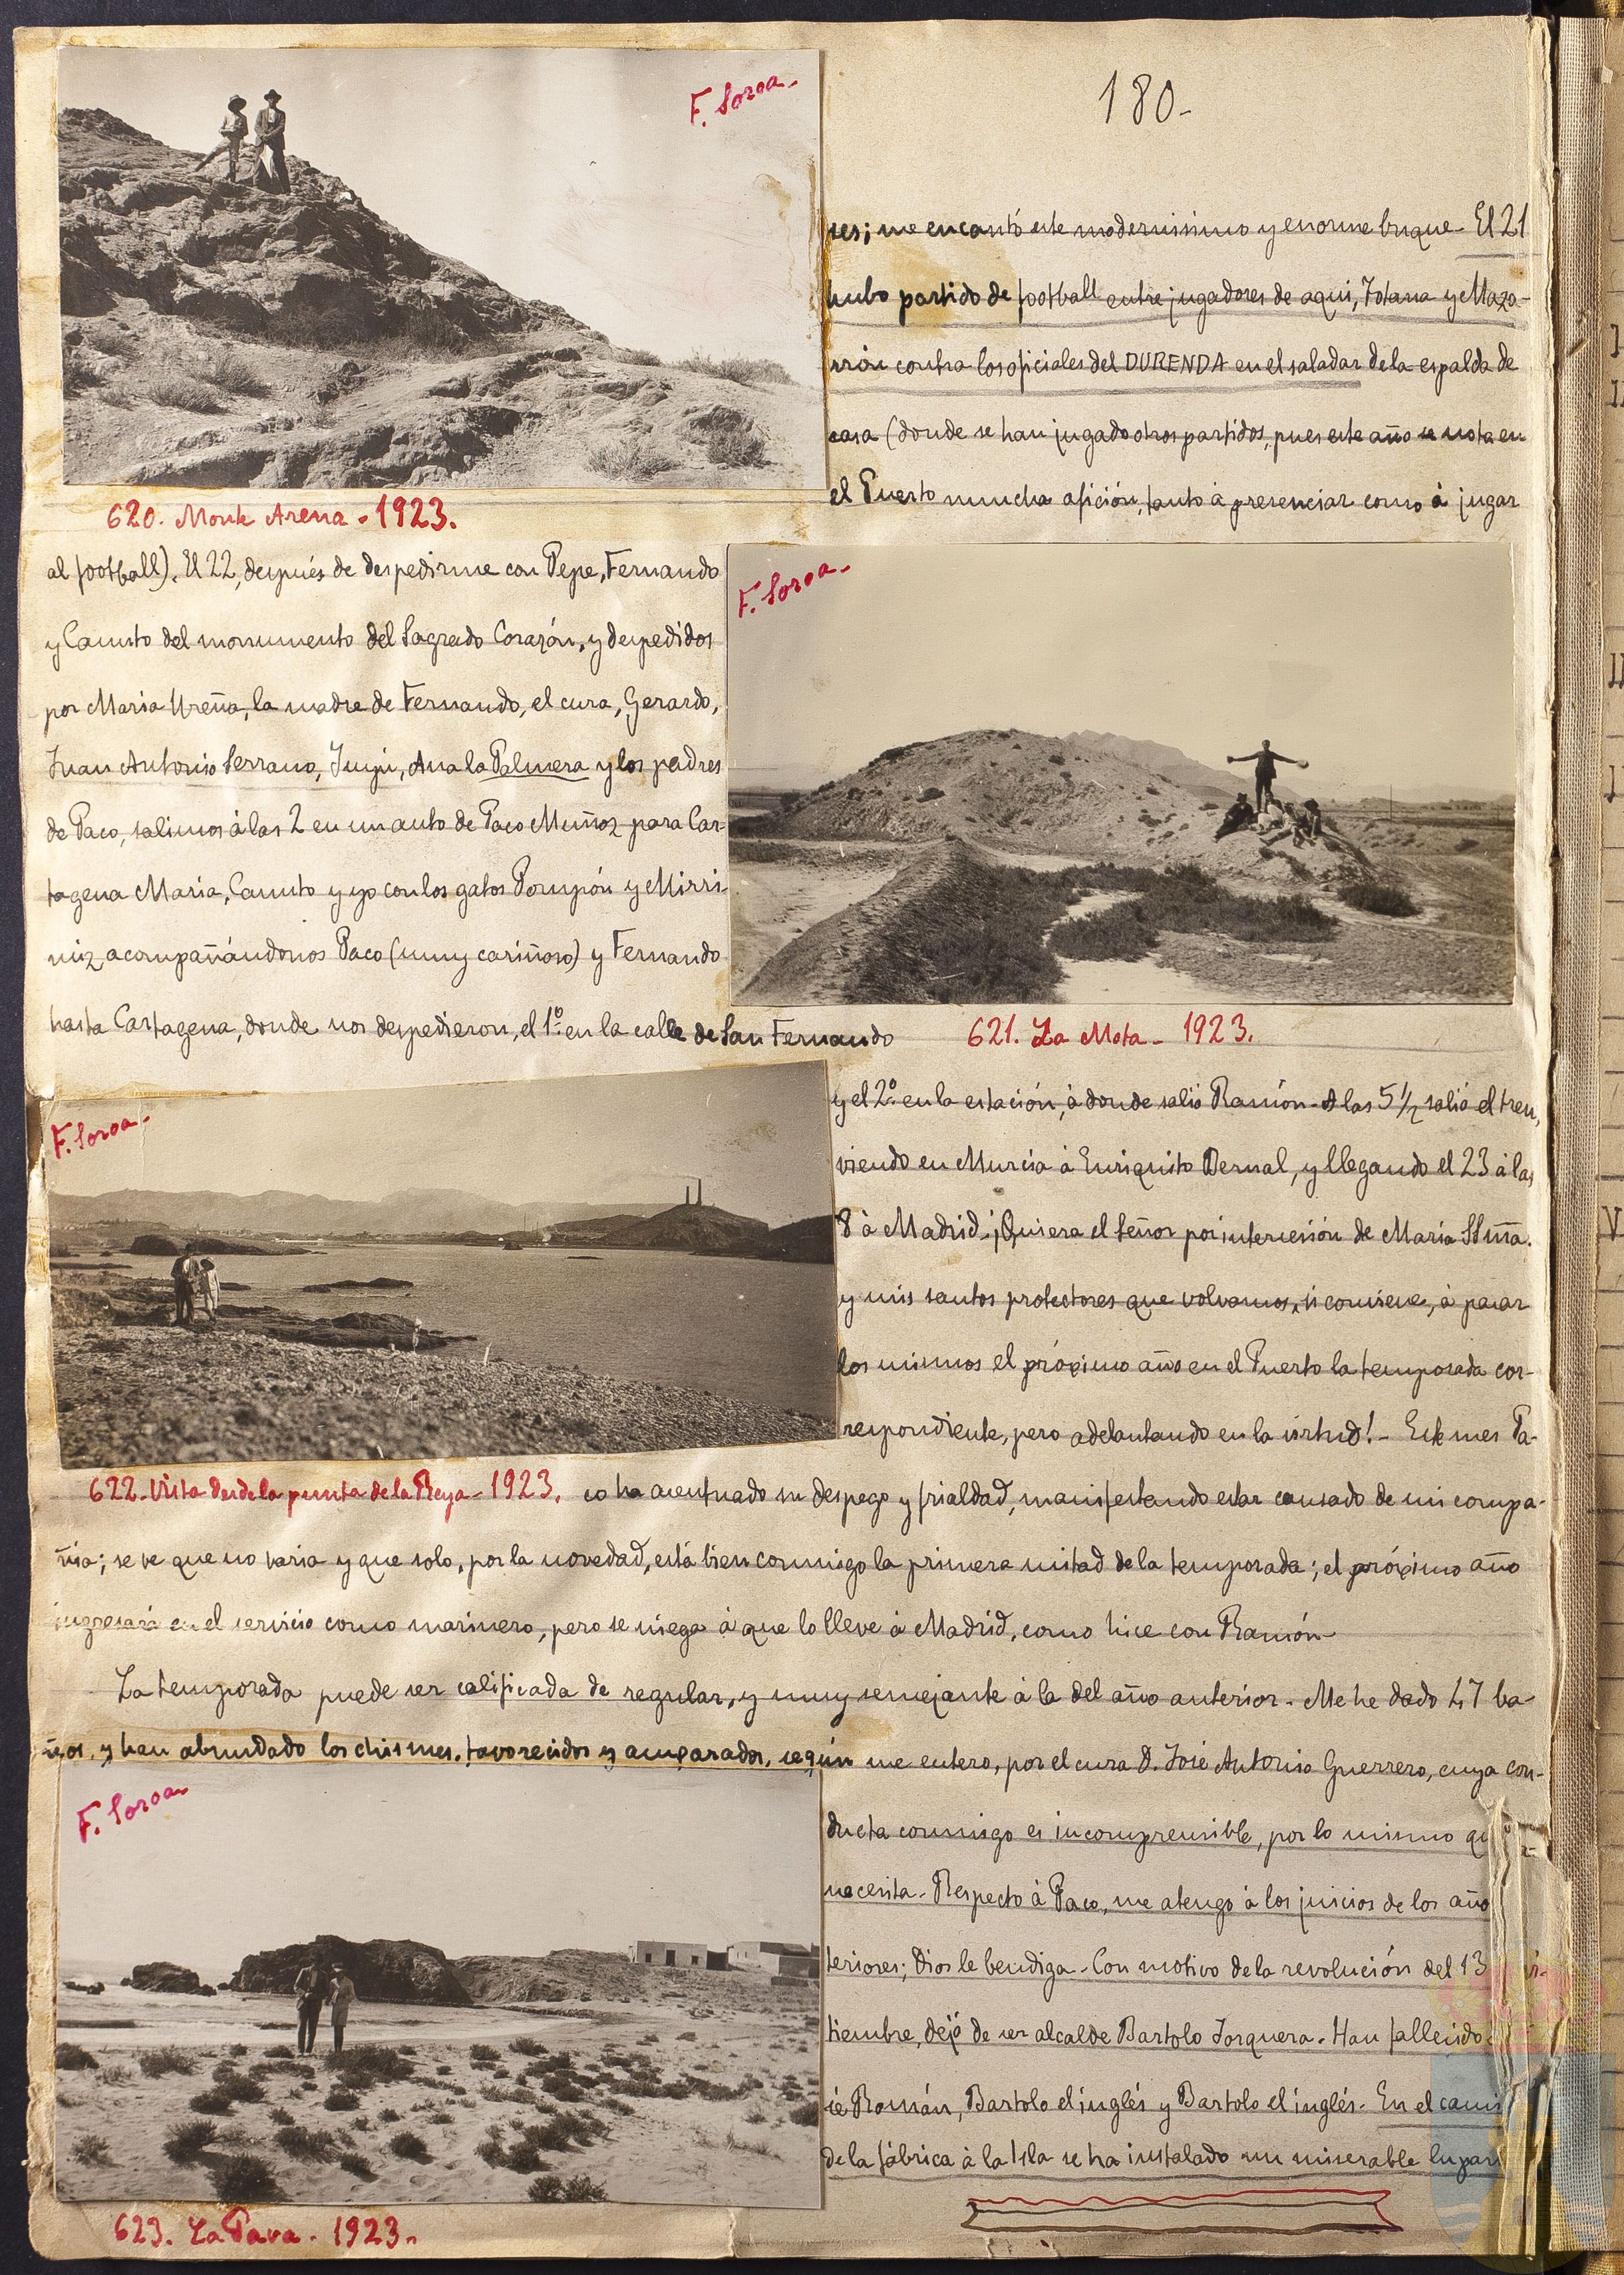 180-
F. Soroa-
res; me encantó este modernisimo y enorme buque- El 21
hubo partido de football entre jugadores de aqui, Totana y Maza-
rrón contra los oficiales del DURENDA en el saladar de la espalda de
casa (donde se han jugado otros partidos, pues este año se nota en
el Puerto mucha afición, tanto á presenciar como á jugar
620. Monte Arena - 1923.
al football). El 22, después de despedirme con Pepe, Fernando
y Canuto del monumento del Sagrado Corazón, y despedidos
por Maria Ureña, la madre de Fernando, el cura, Gerardo,
Juan Antonio Serrano, Ana la Palmera y los padres
de Paco, salimos á las 2 en un auto de Paco Muñoz para Car-
tagena Maria, Canuto y yo con los gatos Pompón y Mirri-
miz acompañándonos Paco (muy cariñoso) y Fernando
hasta Cartagena, donde nos despedieron, el 1º en la calle de San Fernando
F. Soroa-
621. La Mota - 1923.
F. Soroa-
y el 2º en la estación, á donde salió Ramón- A las 5 1/2 salió el tren,
viendo en Murcia á Enriquito Bernal, y llegando el 23 á las
8 á Madrid. ¡Quiera el Señor por intercesión de Maria SSmª.
y mis santos protectores que volvamos, si conviene, á pasar
los mismos el próximo año en el Puerto la temporada cor-
respondiente, pero adelantando en la virtud! - Este mes Pa-
622. Vista desde la punta de la Reya - 1923.
co ha acentuado su despego y frialdad, manifestando estar cansado de mi compa-
ñia; se ve que no varia y que solo, por la novedad, está bien conmigo la primera mitad de la temporada; el próximo año
ingresará en el servicio como marinero, pero se niega á que lo lleve á Madrid, como hice con Ramón-
La temporada puede ser calificada de regular, y muy semejante á la del año anterior. Me he dado 47 ba-
ños, y han abundado los chismes, favorecidos y amparados, según me entero, por el cura D. José Antonio Guerrero, cuya con-
F. Soroa-
ducta conmigo es incomprensible, por lo mismo qu
necesita- Respecto á Paco, me atengo á los juicios de los año
teriores; Dios le bendiga- Con motivo de la revolución del 13
tiembre, dejó de ser alcalde Bartolo Jorquera. Han fallecido
sé Román, Bartolo el inglés y Bartolo el inglés- En el cami
de la fábrica á la Isla se ha instalado un miserable lupan
623. La Pava - 1923.